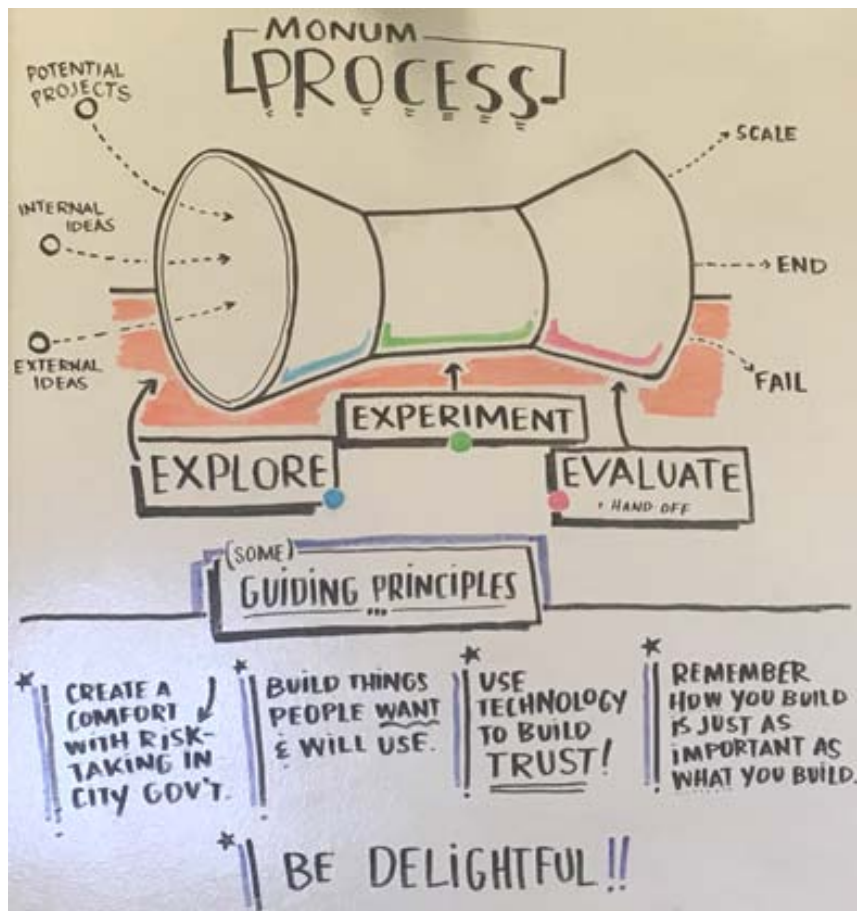 MONUM
PROCESS
POTENTIAL
PROJECTS
INTERNAL
IDEAS
EXTERNAL
IDEAS
SCALE
END
FAIL
EXPLORE
EXPERIMENT
EVALUATE
+ HAND OFF
(SOME)
GUIDING PRINCIPLES
CREATE A
COMFORT
WITH RISK-
TAKING IN
CITY GOV'T.
BUILD THINGS
PEOPLE WANT
& WILL USE.
USE
TECHNOLOGY
TO BUILD
TRUST!
REMEMBER
HOW YOU BUILD
IS JUST AS
IMPORTANT AS
WHAT YOU BUILD.
BE DELIGHTFUL!!